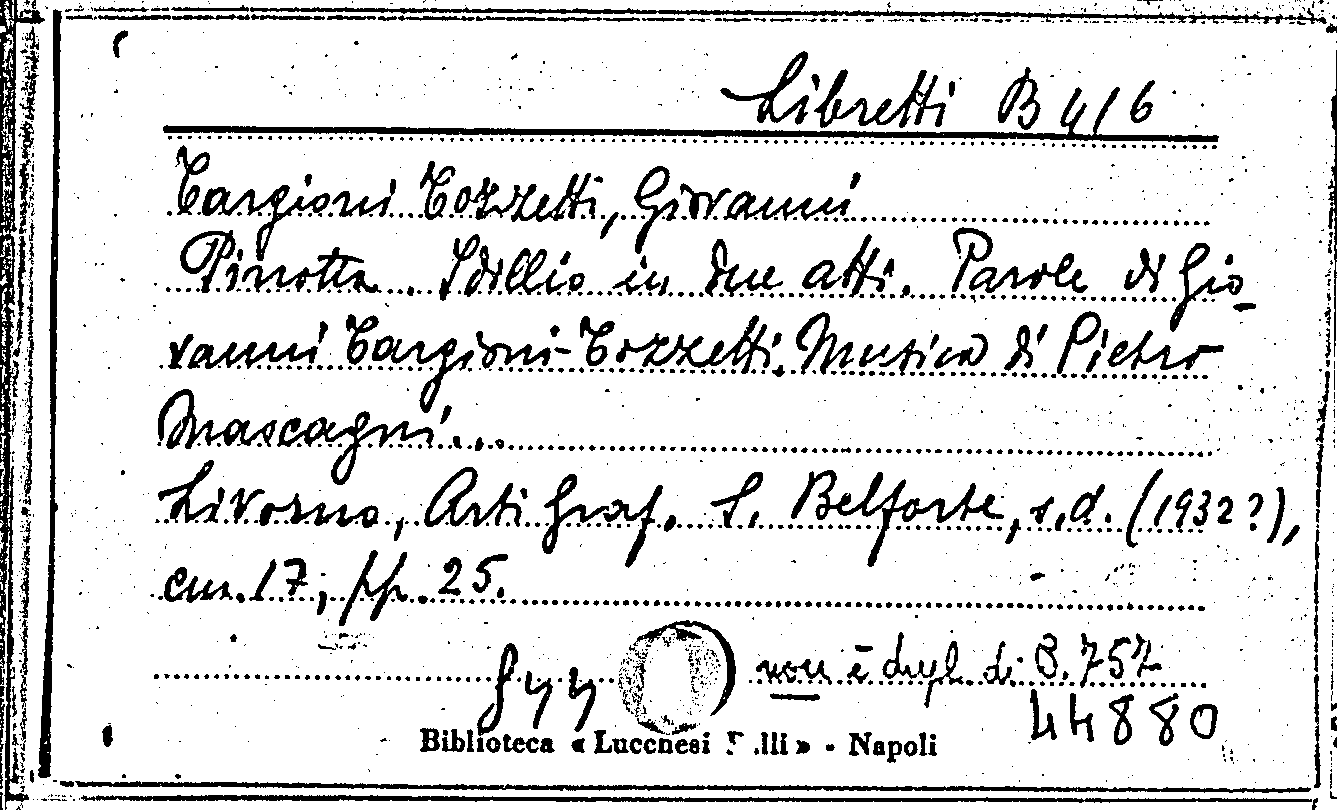 Libretti B 416
Targioni Tozzetti, Giovanni
Pinotta. Idillio in due atti. Parole di Gio-
vanni Targioni-Tozzetti. Musica di Pietro
Mascagni...
Livorno, Arti Graf. S. Belforte, s.d. (1932?),
cm. 17, pp. 25.
non è dupl. di B. 757
44880
Biblioteca « Lucchesi Palli » - Napoli